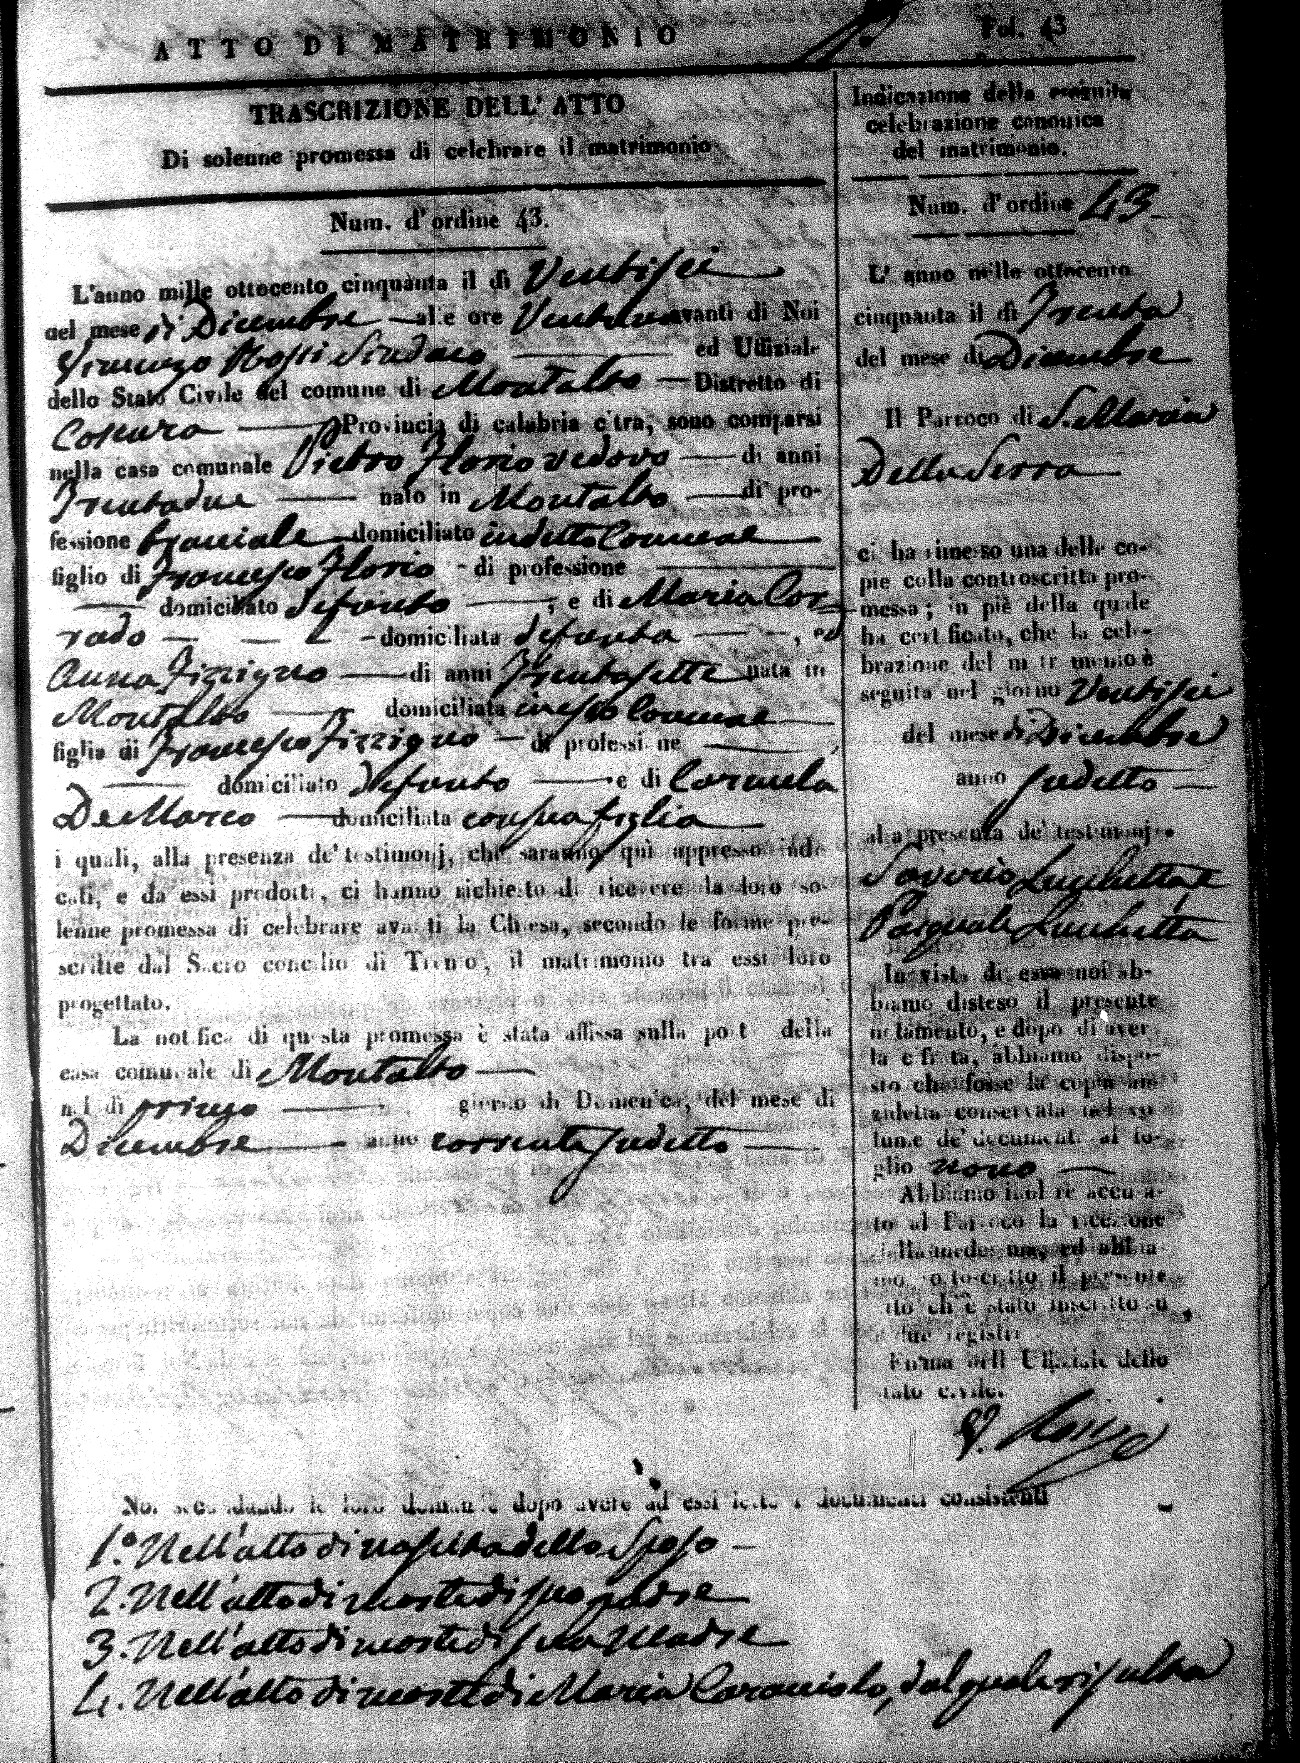 ATTO DI MATRIMONIO
Fol. 43
TRASCRIZIONE DELL' ATTO
Di solenne promessa di celebrare il matrimonio
Num. d'ordine 43.
L'anno mille ottocento cinquanta il dì Ventisei
del mese di Dicembre alle ore Ventuno avanti di Noi
Vincenzo Rossi Sindaco ed Uffiziale
dello Stato Civile del comune di Montalto Distretto di
Cosenza Provincia di calabria citra, sono comparsi
nella casa comunale Pietro Florio vedovo di anni
Trentadue nato in Montalto di pro-
fessione bracciale domiciliato in detto Comune
figlio di Francesco Florio di professione
domiciliato defonto, e di Maria Cor
rado domiciliata defonta, ed
Anna Fizzigno di anni Trentasette nata in
Montalto domiciliata in esso Comune
figlia di Francesco Fizzigno di professione
domiciliato defonto e di Carmela
De Marco domiciliata con sua figlia
i quali, alla presenza de' testimonj, che saranno quì appresso indi-
cati, e da essi prodotti, ci hanno richiesto di ricevere la loro so-
lenne promessa di celebrare avanti la Chiesa, secondo le forme pre-
scritte dal Sacro concilio di Trento, il matrimonio tra essi loro
progettato.
La notifica di questa promessa è stata affissa sulla porta della
casa comunale di Montalto
nel dì primo giorno di Domenica, del mese di
Dicembre anno corrente sudetto
Indicazione della seguita
celebrazione canonica
del matrimonio.
Num. d'ordine 43
L' anno mille ottocento
cinquanta il dì Trenta
del mese di Dicembre
Il Parroco di S. Maria
Della Serra
ci ha rimesso una delle co-
pie colla controscritta pro-
messa; in piè della quale
ha certificato, che la cele-
brazione del matrimonio è
seguita nel giorno Ventisei
del mese di Dicembre
anno sudetto
alla presenza de' testimonj
Saverio Lucchetta e
Pasquale Lucchetta
In vista di essa noi ab-
biamo disteso il presente
notamento, e dopo di aver-
la cifrata, abbiamo dispo-
sto che fosse la copia an-
zidetta conservata nel vo-
lume de' documenti al fo-
glio nono
Abbiamo inoltre accusa-
to al Parroco la ricezione
della medesima, ed abbia-
mo sottoscritto il presente
atto ch'è stato inscritto su
due registri
Firma dell' Uffiziale dello
stato civile.
V. Rossi
Noi secondando le loro domande dopo avere ad essi letto i documenti consistenti
1.° Nell'atto di nascita dello Sposo
2. Nell'atto di morte di suo padre
3. Nell'atto di morte di sua Madre
4. Nell'atto di morte di Maria Caracciolo, dal quale risulta